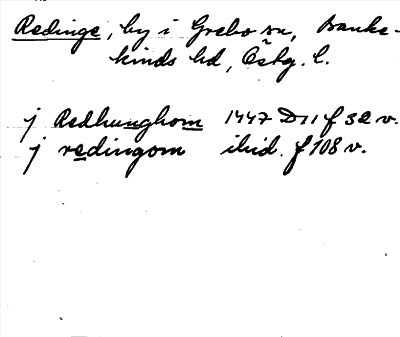 Redinge, by i Grebo sn, Banke-
kinds hd, Östg. l.
j Redhunghom 1447 D11 f 32 v.
j redingom ibid. f 108 v.